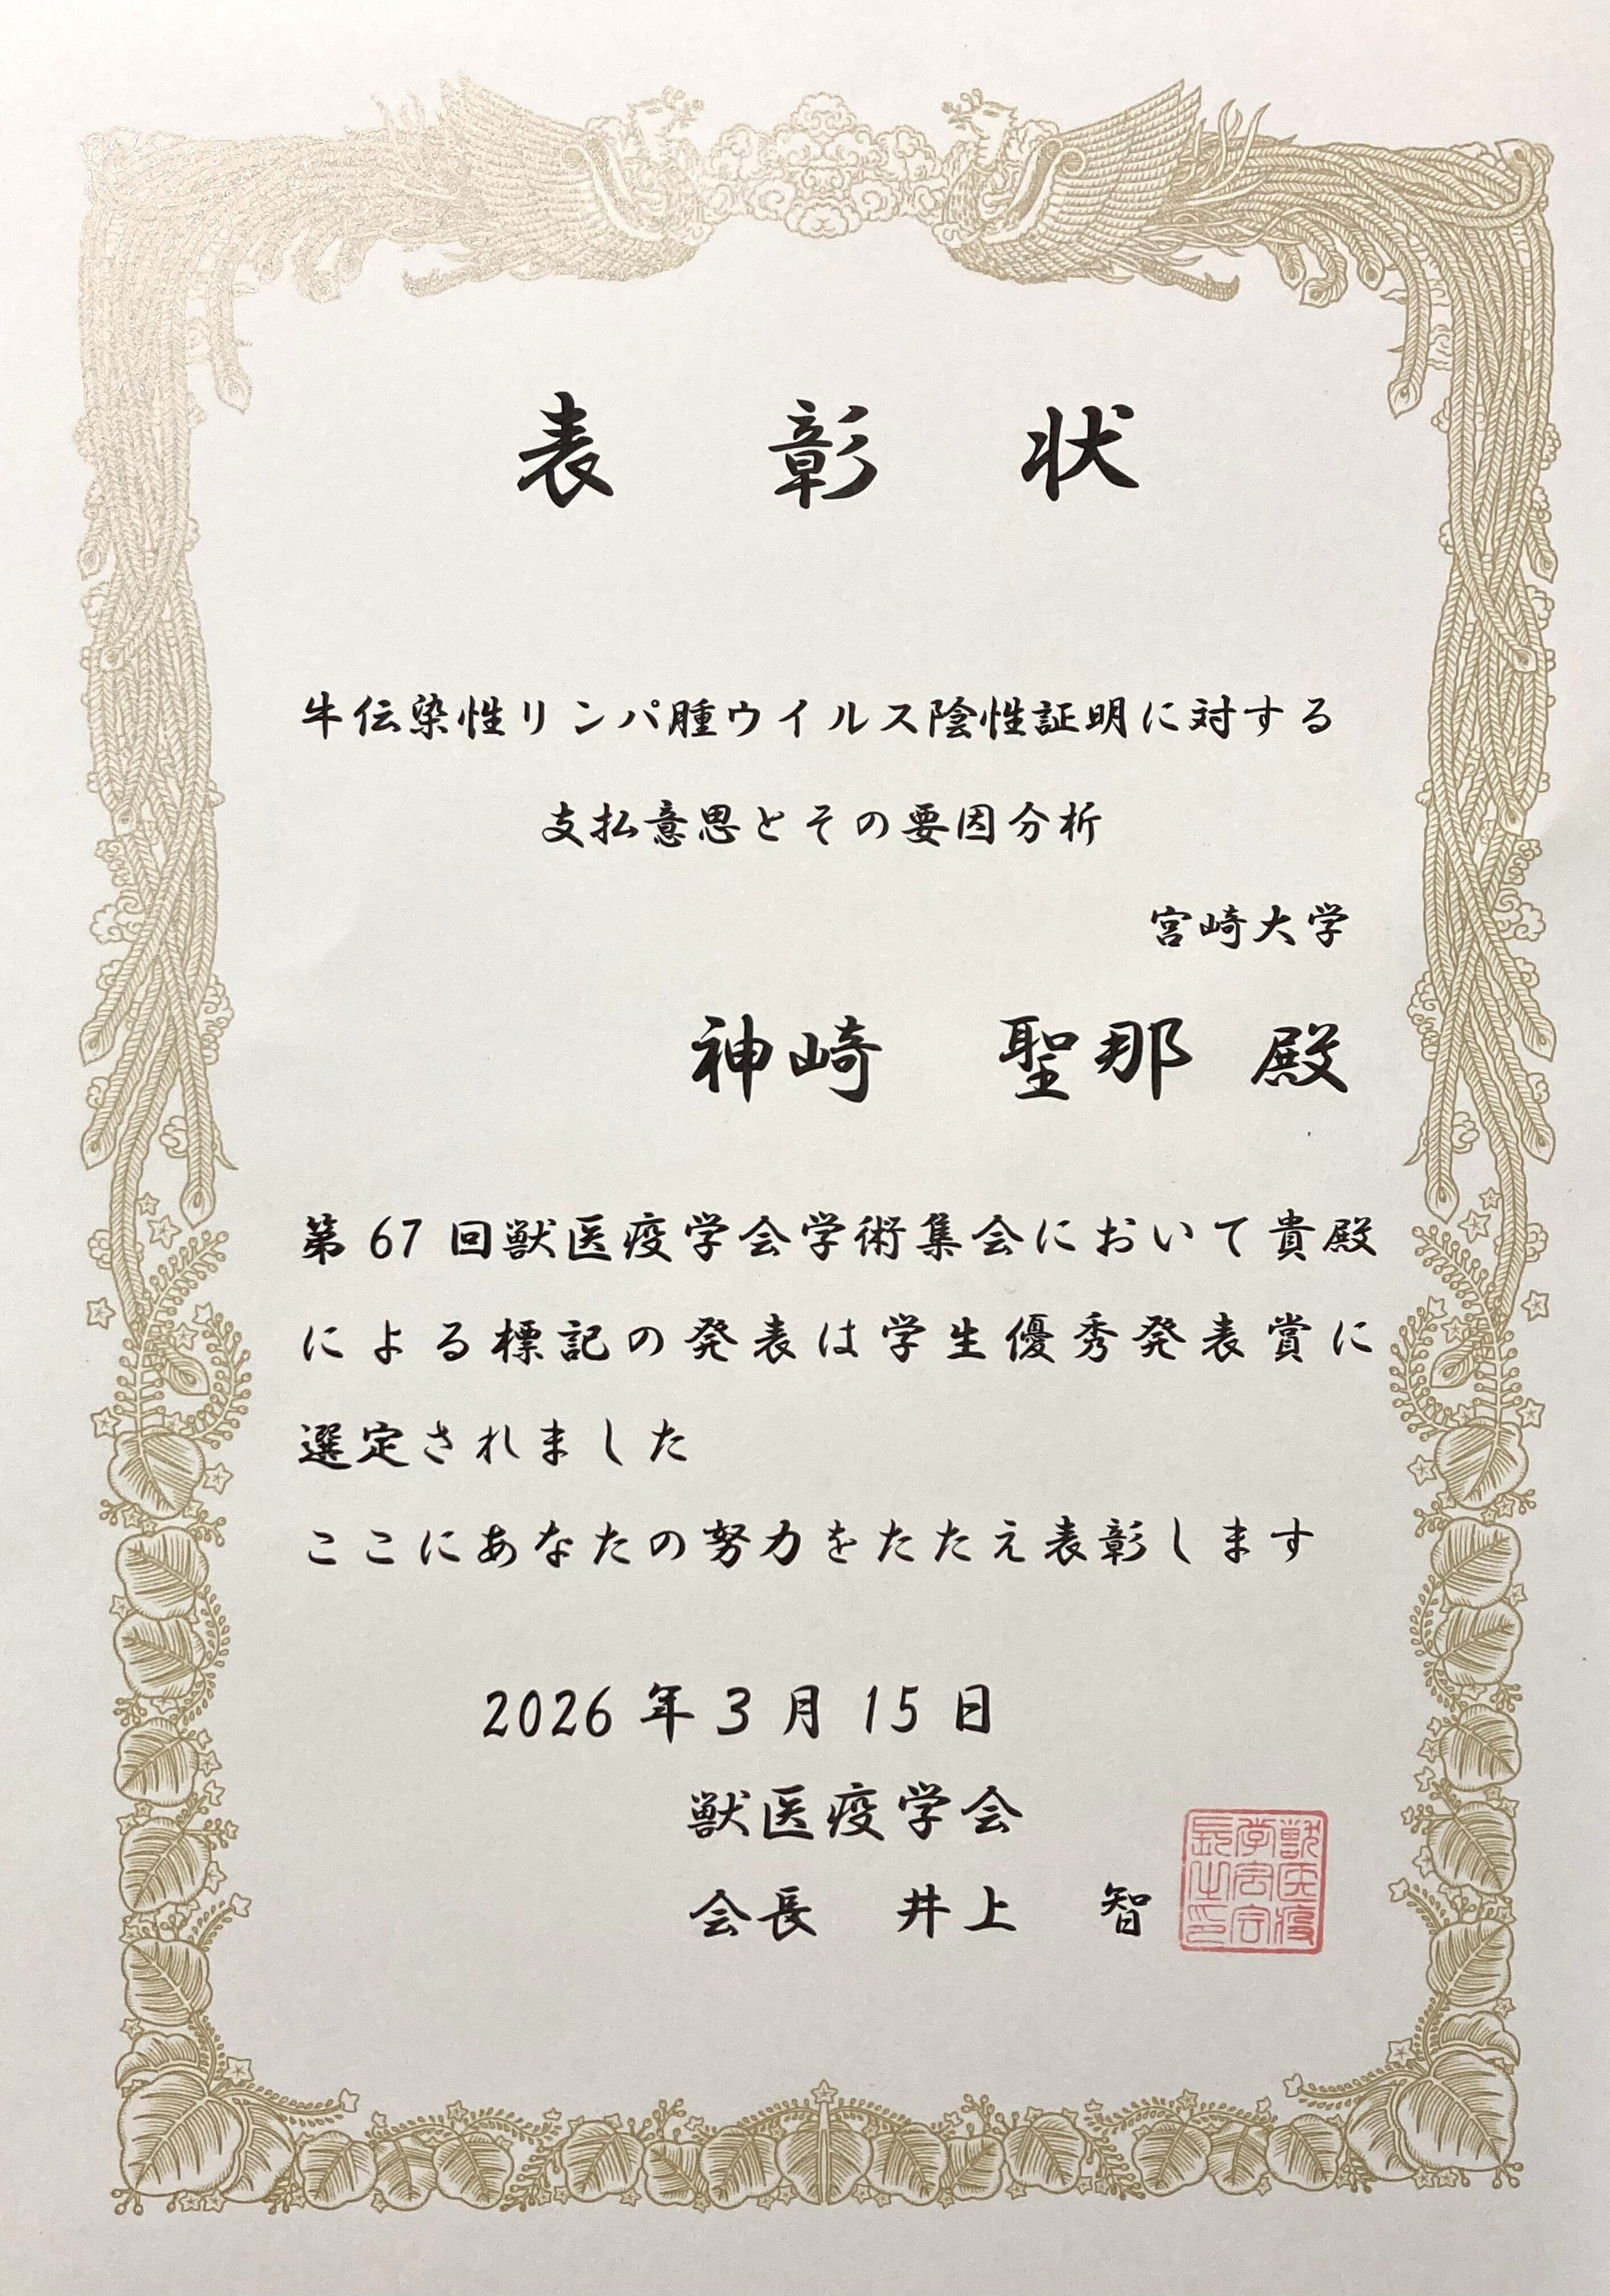 表 彰 状
牛伝染性リンパ腫ウイルス陰性証明に対する
支払意思とその要因分析
宮崎大学
神崎 聖那 殿
第 67 回獣医疫学会学術集会において貴殿
による標記の発表は学生優秀発表賞に
選定されました
ここにあなたの努力をたたえ表彰します
2026 年 3 月 15 日
獣医疫学会
会長 井上 智
獣医疫
学会会
長之印